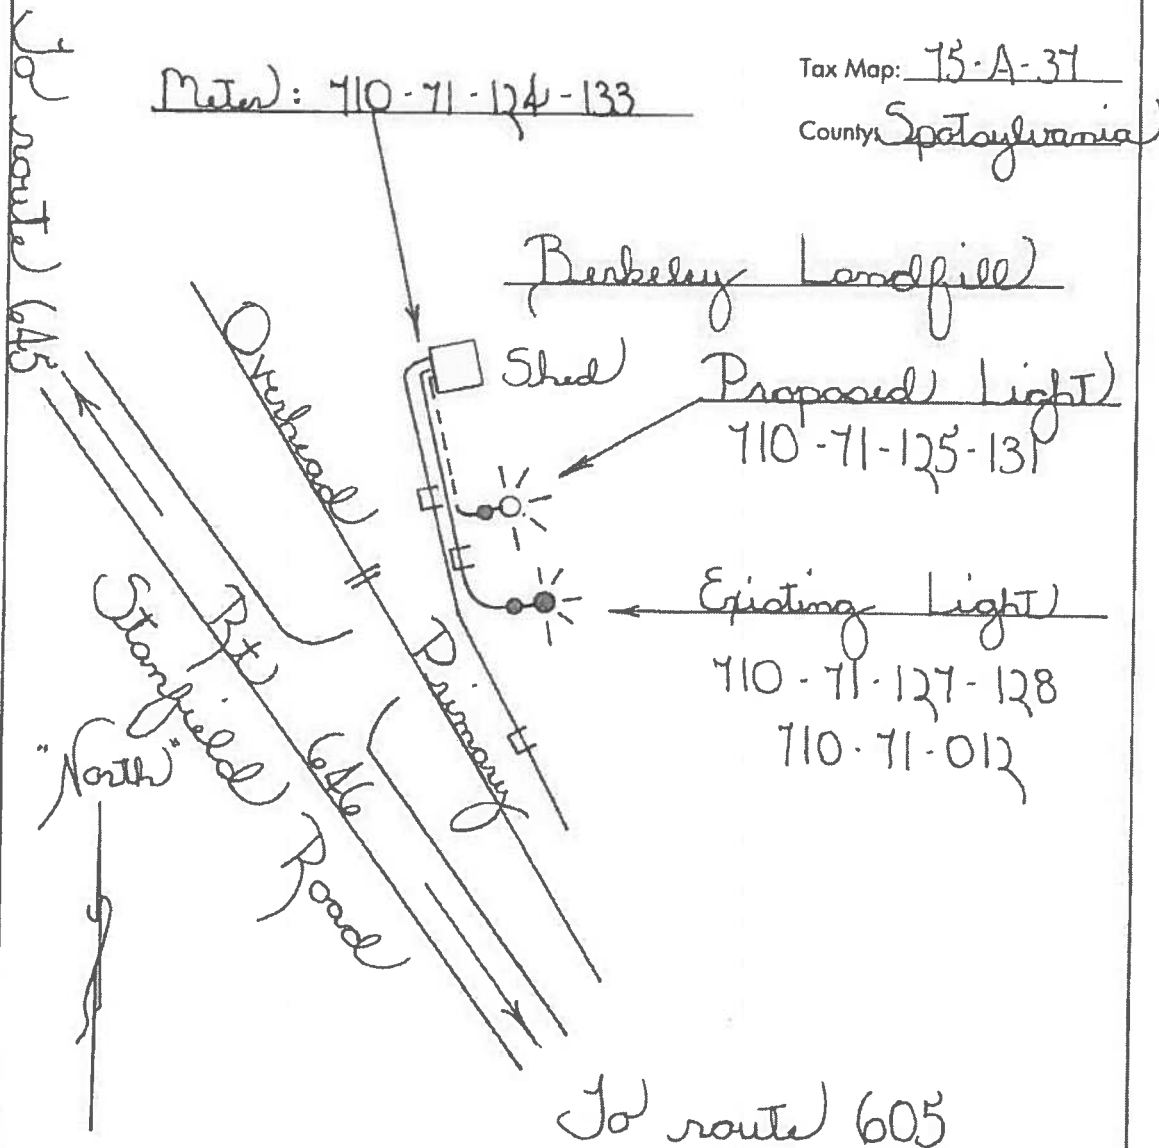 To route 645
Meter: 710-71-124-133
Tax Map: 75-A-37
County: Spotsylvania
Berkeley Landfill
Shed
Proposed Light
710-71-125-131
Overhead Primary
Existing Light
710-71-127-128
710-71-012
Rt 646
Stanfield Road
"North"
To route 605